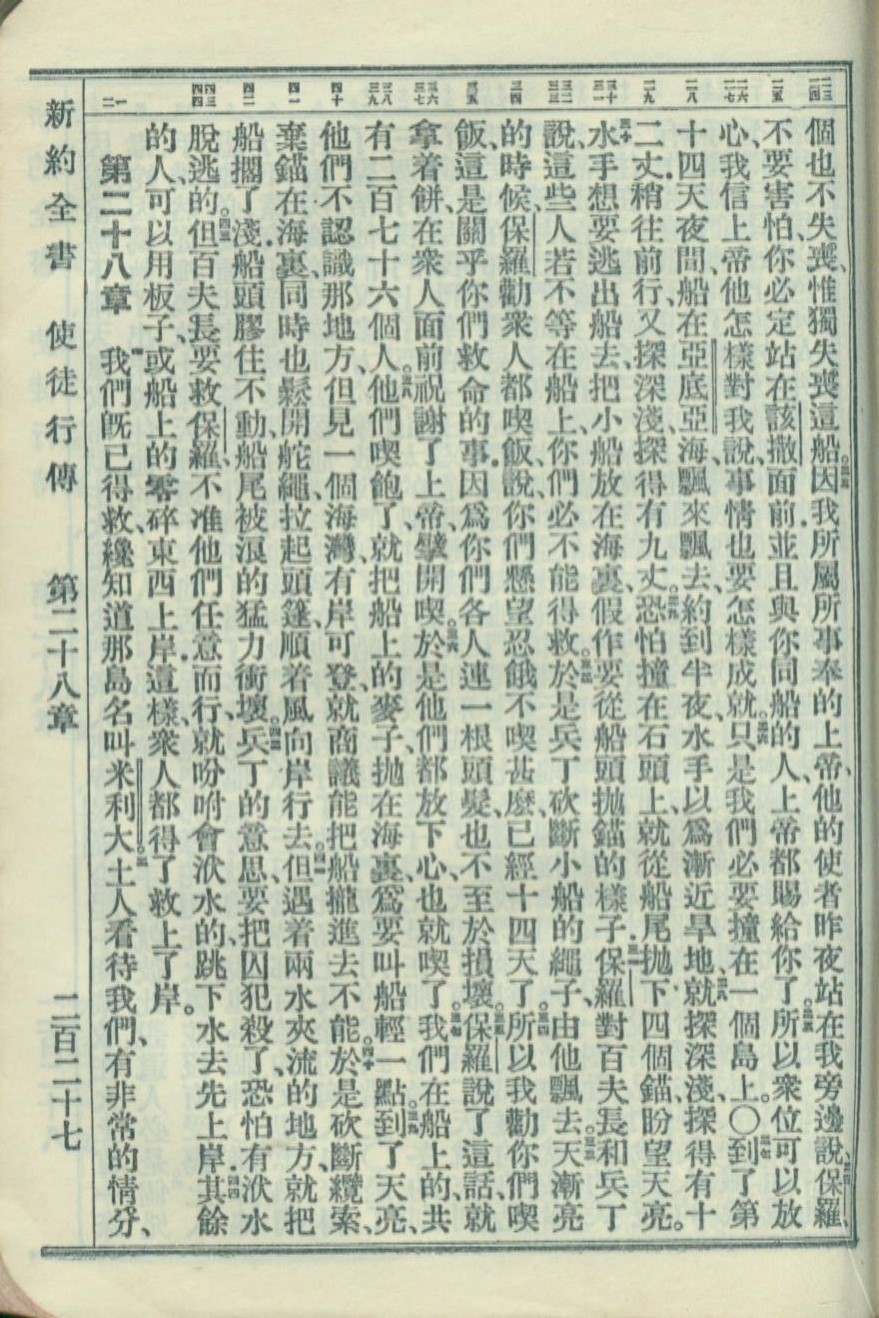 個也不失喪、惟獨失喪這船。二三因我所屬所事奉的上帝、他的使者昨夜站在我旁邊說、二四保羅、
不要害怕、你必定站在該撒面前、並且與你同船的人、上帝都賜給你了。二五所以衆位可以放
心、我信上帝他怎樣對我說、事情也要怎樣成就。二六只是我們必要撞在一個島上。〇二七到了第
十四天夜間、船在亞底亞海飄來飄去、約到半夜、水手以爲漸近旱地、二八就探深淺、探得有十
二丈、稍往前行、又探深淺、探得有九丈。二九恐怕撞在石頭上、就從船尾拋下四個錨、盼望天亮。
三十水手想要逃出船去、把小船放在海裏、假作要從船頭拋錨的樣子、三一保羅對百夫長和兵丁
說、這些人若不等在船上、你們必不能得救。三二於是兵丁砍斷小船的繩子、由他飄去。三三天漸亮
的時候、保羅勸衆人都喫飯、說、你們懸望忍餓不喫甚麼、已經十四天了。三四所以我勸你們喫
飯、這是關乎你們救命的事、因爲你們各人連一根頭髮也不至於損壞。三五保羅說了這話、就
拿着餅、在衆人面前祝謝了上帝、擘開喫。三六於是他們都放下心、也就喫了。三七我們在船上的、共
有二百七十六個人。三八他們喫飽了、就把船上的麥子、拋在海裏、爲要叫船輕一點。三九到了天亮、
他們不認識那地方、但見一個海灣、有岸可登、就商議能把船攏進去不能。四十於是砍斷纜索、
棄錨在海裏、同時也鬆開舵繩、拉起頭篷、順着風向岸行去。四一但遇着兩水夾流的地方、就把
船擱了淺、船頭膠住不動、船尾被浪的猛力衝壞。四二兵丁的意思、要把囚犯殺了、恐怕有洑水
脫逃的。四三但百夫長要救保羅、不准他們任意而行、就吩咐會洑水的、跳下水去先上岸、四四其餘
的人、可以用板子、或船上的零碎東西上岸、這樣、衆人都得了救、上了岸。
第二十八章 我們旣已得救、纔知道那島名叫米利大。二土人看待我們、有非常的情分、
新約全書 使徒行傳 第二十八章 二百二十七